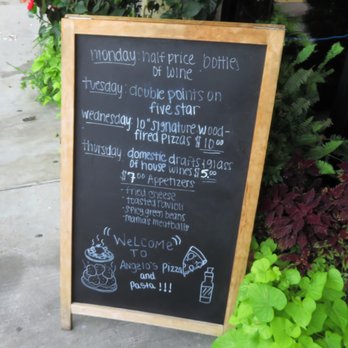 monday: half price bottles
of wine
tuesday: double points on
five star
wednesday 10" signature wood-
fired pizzas $10.00
thursday domestic drafts & glass
of house wines $5.00
$7.00 Appetizers
- fried cheese
- toasted ravioli
- spicy green beans
- mama's meatballs
WELCOME
TO
Angelo's Pizza
and
Pasta!!!